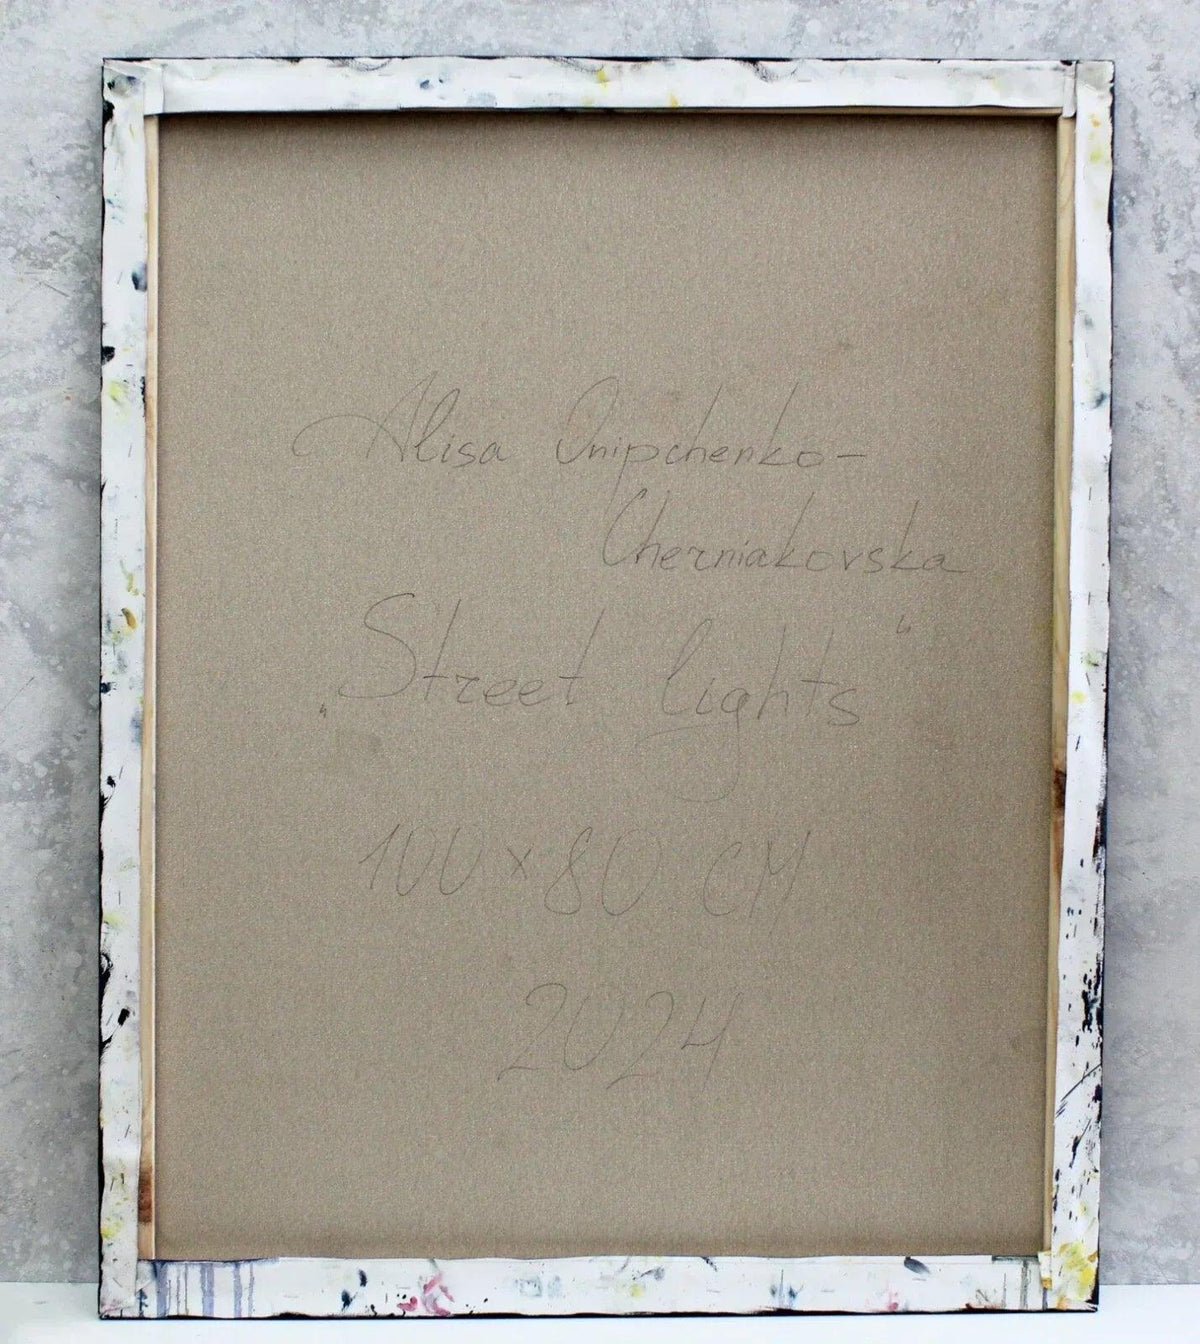 Alisa Onipchenko-
Cherniakovska
„Street lights“
100x80 см
2024